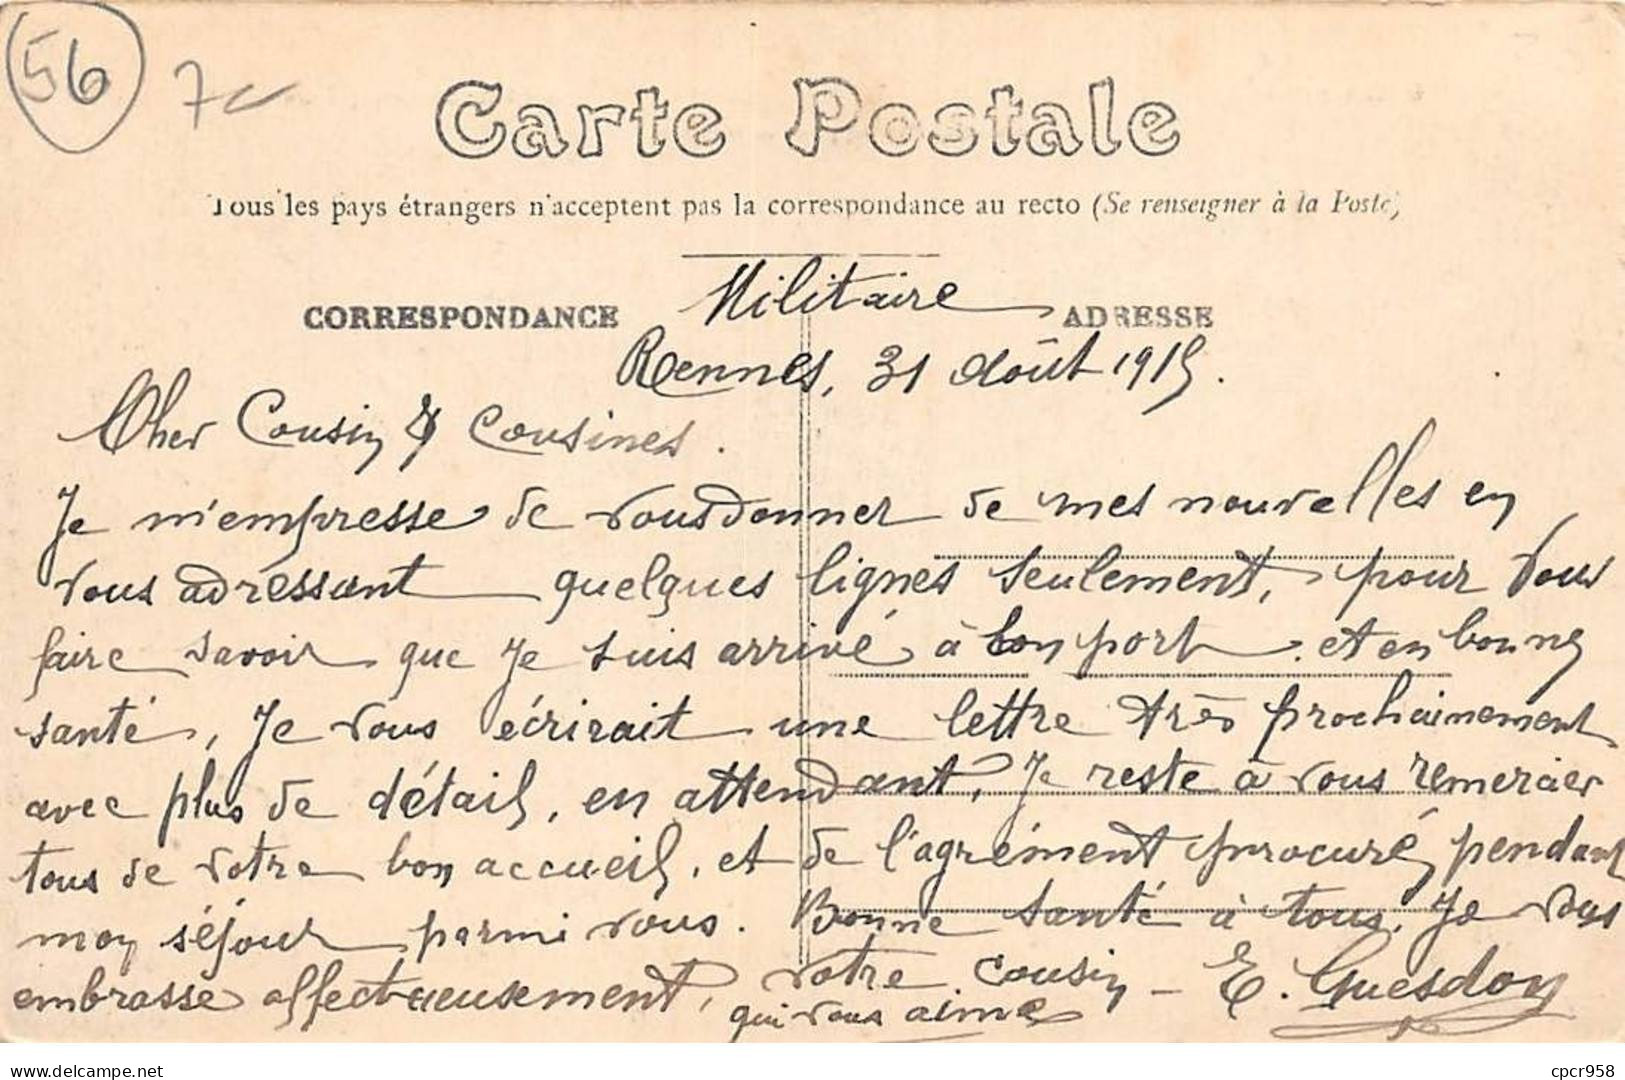 56
Carte Postale
Tous les pays étrangers n'acceptent pas la correspondance au recto (Se renseigner à la Poste)
CORRESPONDANCE
Militaire
ADRESSE
Rennes, 31 Août 1915.
Cher Cousin & Cousines.
Je m'empresse de vous donner de mes nouvelles en
vous adressant quelques lignes seulement, pour vous
faire savoir que je suis arrivé à bon port et en bonne
santé, Je vous écrirait une lettre très prochainement
avec plus de détails, en attendant, Je reste à vous remercier
tous de votre bon accueil, et de l'agrément procuré pendant
mon séjour parmi vous. Bonne santé à tous, Je vous
embrasse affectueusement, votre cousin - E. Guesdon
qui vous aime
delcampe.net
cpcr958